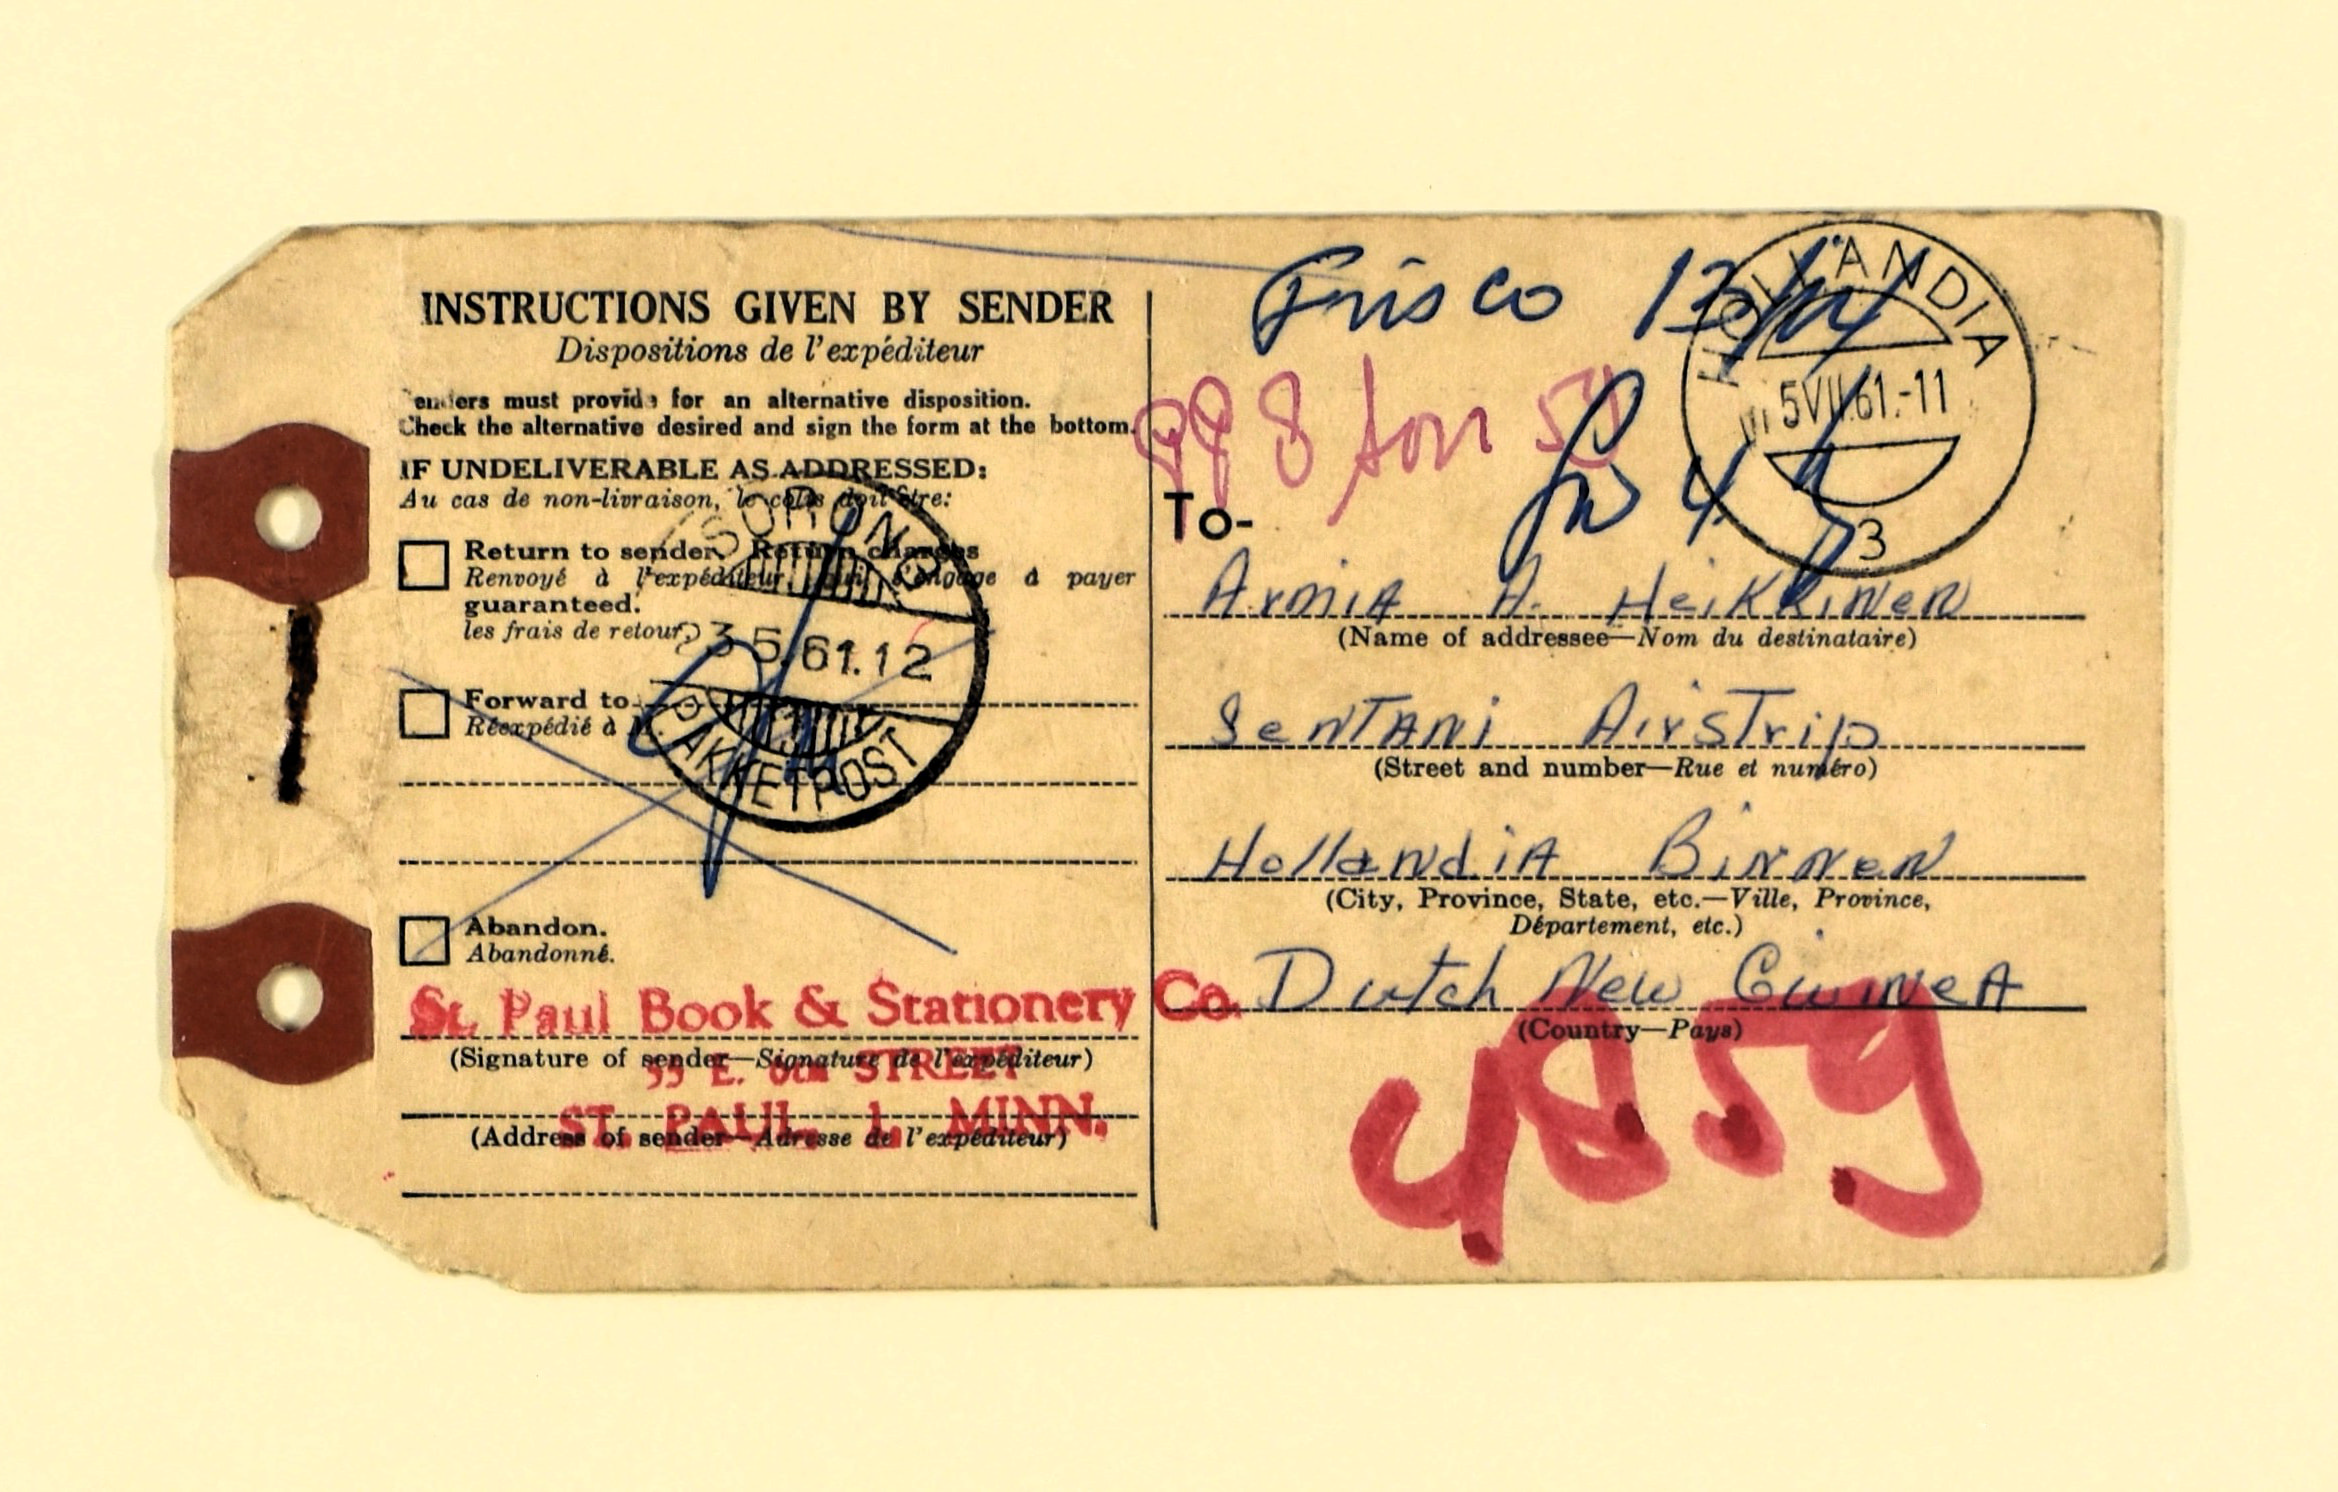 INSTRUCTIONS GIVEN BY SENDER
Dispositions de l'expéditeur
Senders must provide for an alternative disposition.
Check the alternative desired and sign the form at the bottom.
IF UNDELIVERABLE AS ADDRESSED:
Au cas de non-livraison, le colis doit être:
Return to sender. Return charges
Renvoyé à l'expéditeur, qui s'engage à payer
guaranteed.
les frais de retour.
Forward to
Réexpédié à M.
Abandon.
Abandonné.
St. Paul Book & Stationery Co.
(Signature of sender—Signature de l'expéditeur)
55 E. 6th STREET
ST. PAUL 1, MINN.
(Address of sender—Adresse de l'expéditeur)
SORONG
35.61.12
PAKKETPOST
Frisco
HOLLANDIA
5VII.61.-11
3
998
To-
Armia A. Heikkinen
(Name of addressee—Nom du destinataire)
Sentani Airstrip
(Street and number—Rue et numéro)
Hollandia Binnen
(City, Province, State, etc.—Ville, Province,
Département, etc.)
Dutch New Guinea
(Country—Pays)
4859